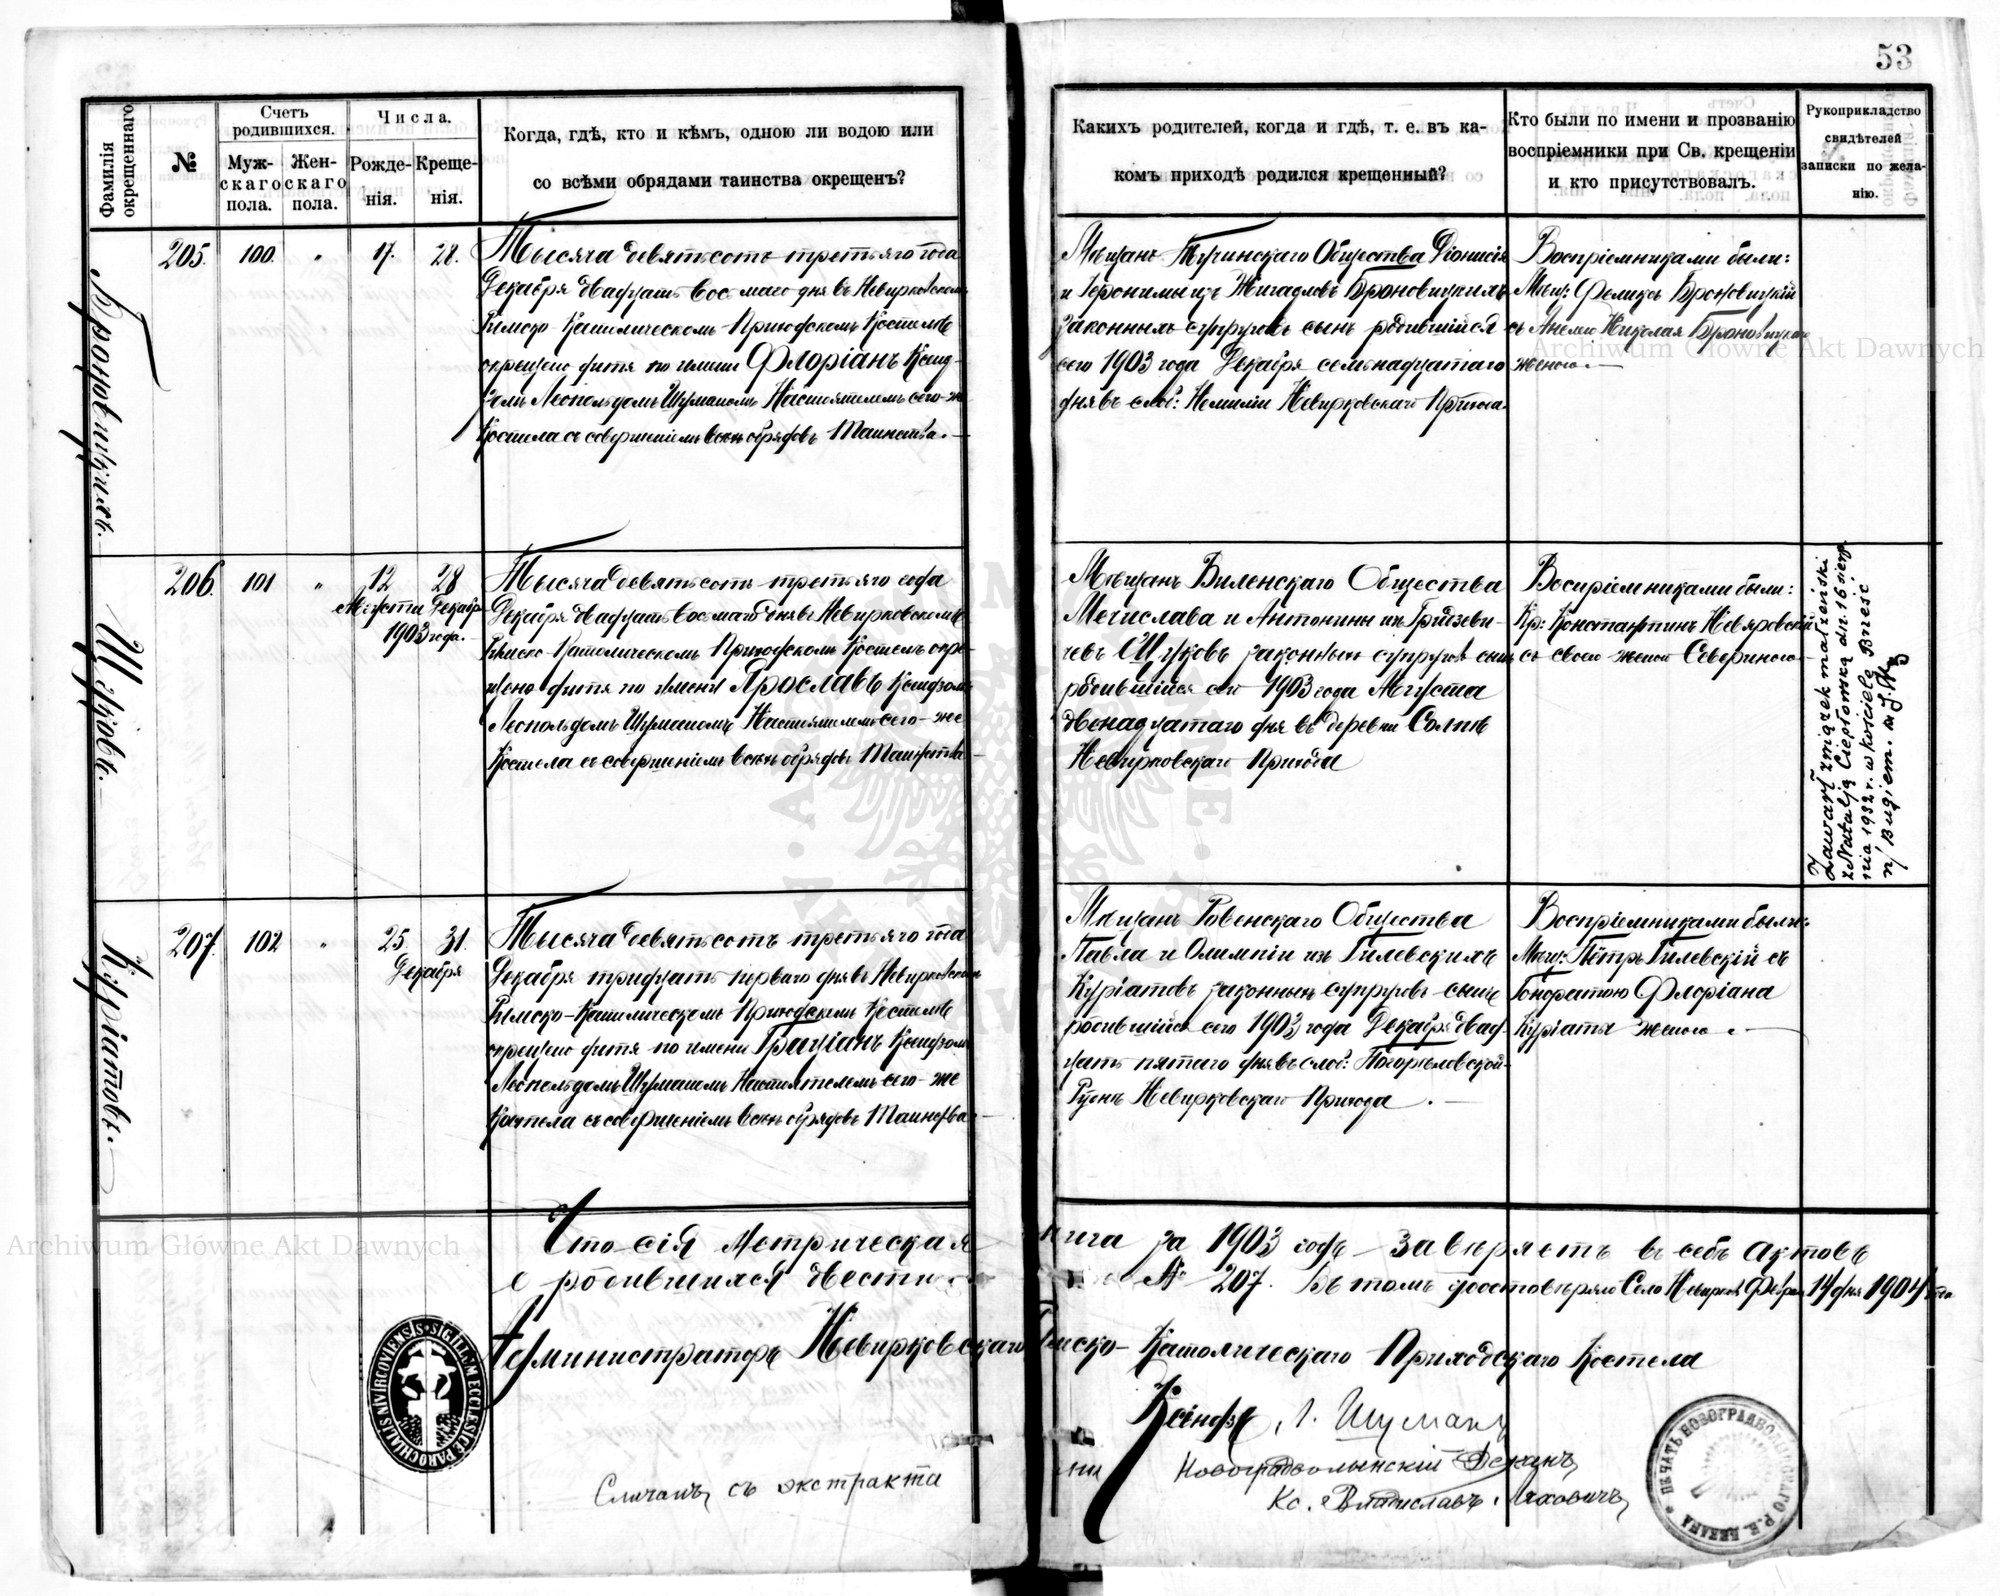 53
Фамилія окрещеннаго.
№
Счетъ родившихся.
Мужскаго пола.
Женскаго пола.
Числа.
Рожденія.
Крещенія.
Когда, гдѣ, кто и кѣмъ, одною ли водою или
со всѣми обрядами таинства окрещенъ?
Какихъ родителей, когда и гдѣ, т. е. въ ка-
комъ приходѣ родился крещенный?
Кто были по имени и прозванію
воспріемники при Св. крещеніи
и кто присутствовалъ.
Рукоприкладство
свидѣтелей
записки по жела-
нію.
Броновицкихъ.
205. 100. " 17. 28.
Тысяча девятьсотъ третьяго года
Декабря двадцать восмаго дня въ Невирковскомъ
Римско-Католическомъ Приходскомъ Костелѣ
окрещено дитя по имени Флоріанъ Ксенд-
зомъ Леопольдомъ Шуманомъ Настоятелемъ сего-же
Костела съ совершеніемъ всѣхъ обрядовъ Таинства.
Мѣщанъ Тучинскаго Общества Діонисія
и Геронимы изъ Броновицкихъ
законныхъ супруговъ сынъ родившійся
сего 1903 года Декабря семьнадцатаго
дня въ слоб: Невирковскаго Прихода.
Воспріемниками были:
Мѣщ: Феликсъ Броновицкій
съ Николая Броновицкаго
женою.
Щуковъ.
206. 101 " 12 28
Августа Декабр
1903 года.
Тысяча девятьсотъ третьяго года
Декабря двадцать восмаго дня въ Невирковскомъ
Римско-Католическомъ Приходскомъ Костелѣ окре-
щено дитя по имени Ярославъ Ксендзомъ
Леопольдомъ Шуманомъ Настоятелемъ сего-же
Костела съ совершеніемъ всѣхъ обрядовъ Таинства
Мѣщанъ Виленскаго Общества
Мечислава и Антонины изъ Гридзеви-
чевъ Щуковъ законныхъ супруговъ сынъ
родившійся сего 1903 года Августа
двенадцатаго дня въ деревни
Невирковскаго Прихода
Воспріемниками были:
Кр: Константинъ Невяровскій
съ своею женой Севериною
Zawarł związek małżeński
z Natalją Ciepłowską dn. 16 sierp.
nia 1932 r. w kościele Brześć
n/Bugiem.
Куріатовъ.
207. 102 " 25. 31.
Декабря
Тысяча девятьсотъ третьяго года
Декабря тридцать перваго дня въ Невирковскомъ
Римско-Католическомъ Приходскомъ Костелѣ
окрещено дитя по имени Граціанъ Ксендзомъ
Леопольдомъ Шуманомъ Настоятелемъ сего-же
Костела съ совершеніемъ всѣхъ обрядовъ Таинства
Мѣщанъ Ровенскаго Общества
Павла и Олимпіи изъ Гилевскихъ
Куріатовъ законныхъ супруговъ сынъ
родившійся сего 1903 года Декабря двад-
цать пятаго дня въ слоб:
Невирковскаго Прихода.
Воспріемниками были:
Мѣщ: Петръ Гилевскій съ
Гоноратою Флоріана
Куріаты женою.
Что сія Метрическая книга за 1903 годъ заключаетъ въ себѣ актовъ
о родившихся двести № 207. Въ томъ удостовѣряю Село Невирковъ Феврал 14 дня 1904 года
Администраторъ Невирковскаго Римско-Католическаго Приходскаго Костела
Ксендзъ Л. Шуманъ
Сличалъ съ экстрактами
Новоградволынскій Деканъ
Кс. Владиславъ
SIGILLUM ECCLESIÆ PAROCHIALIS NIVIRCOVIENSIS
ПЕЧАТЬ НОВОГРАДВОЛЫНСКАГО Р. К. ДЕКАНА
Archiwum Główne Akt Dawnych
Archiwum Główne Akt Dawnych